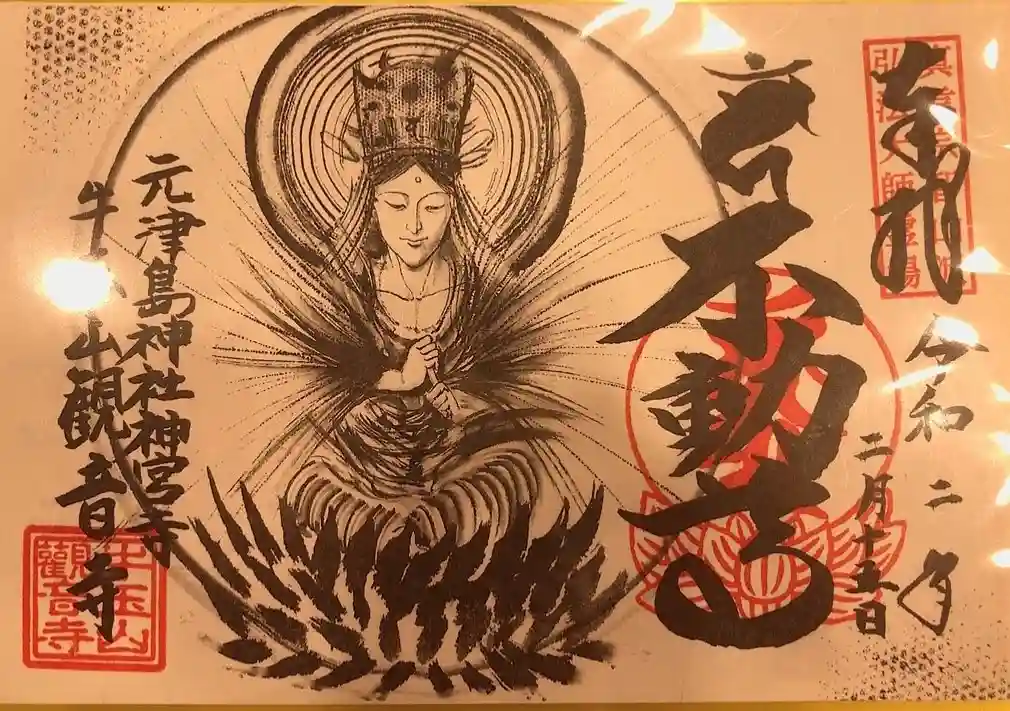 奉拝
弘法大師霊場
令和二年
二月十五日
不動尊
元津島神社神宮寺
牛 山觀音寺
牛玉山
觀音寺